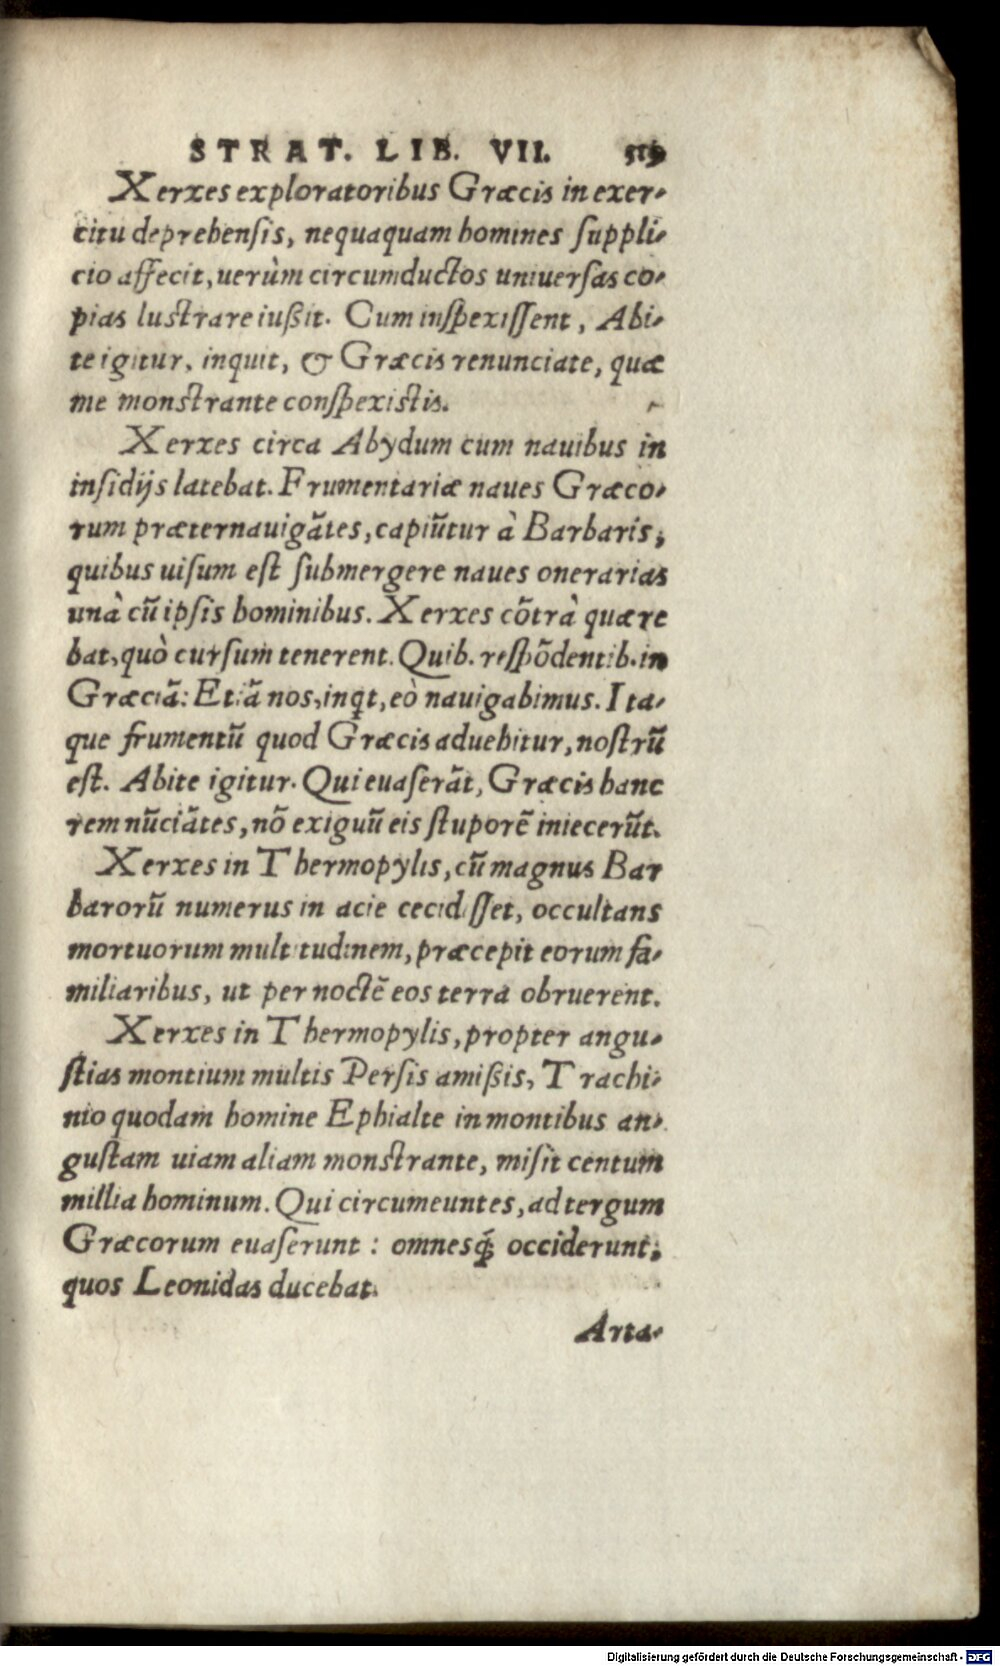 STRAT. LIB. VII. 519
Xerxes exploratoribus Græcis in exer-
citu deprehensis, nequaquam homines suppli-
cio affecit, uerùm circumductos uniuersas co-
pias lustrare iußit. Cum inspexissent, Abi-
te igitur, inquit, & Græcis renunciate, quæ
me monstrante conspexistis.
Xerxes circa Abydum cum nauibus in
insidijs latebat. Frumentariæ naues Græco-
rum præternauigãtes, capiũtur à Barbaris,
quibus uisum est submergere naues onerarias
unà cũ ipsis hominibus. Xerxes cõtrà quære
bat, quò cursum tenerent. Quib. respõdentib. in
Græciã: Etiã nos, inqt, eò nauigabimus. Ita-
que frumentũ quod Græcis aduehitur, nostrũ
est. Abite igitur. Qui euaserãt, Græcis hanc
rem nũciãtes, nõ exiguũ eis stuporẽ iniecerũt.
Xerxes in Thermopylis, cũ magnus Bar
barorũ numerus in acie cecidisset, occultans
mortuorum multitudinem, præcepit eorum fa-
miliaribus, ut per noctẽ eos terra obruerent.
Xerxes in Thermopylis, propter angu-
stias montium multis Persis amißis, Trachi-
nio quodam homine Ephialte in montibus an-
gustam uiam aliam monstrante, misit centum
millia hominum. Qui circumeuntes, ad tergum
Græcorum euaserunt : omnesq́; occiderunt,
quos Leonidas ducebat.
Arta-
Digitalisierung gefördert durch die Deutsche Forschungsgemeinschaft - DFG